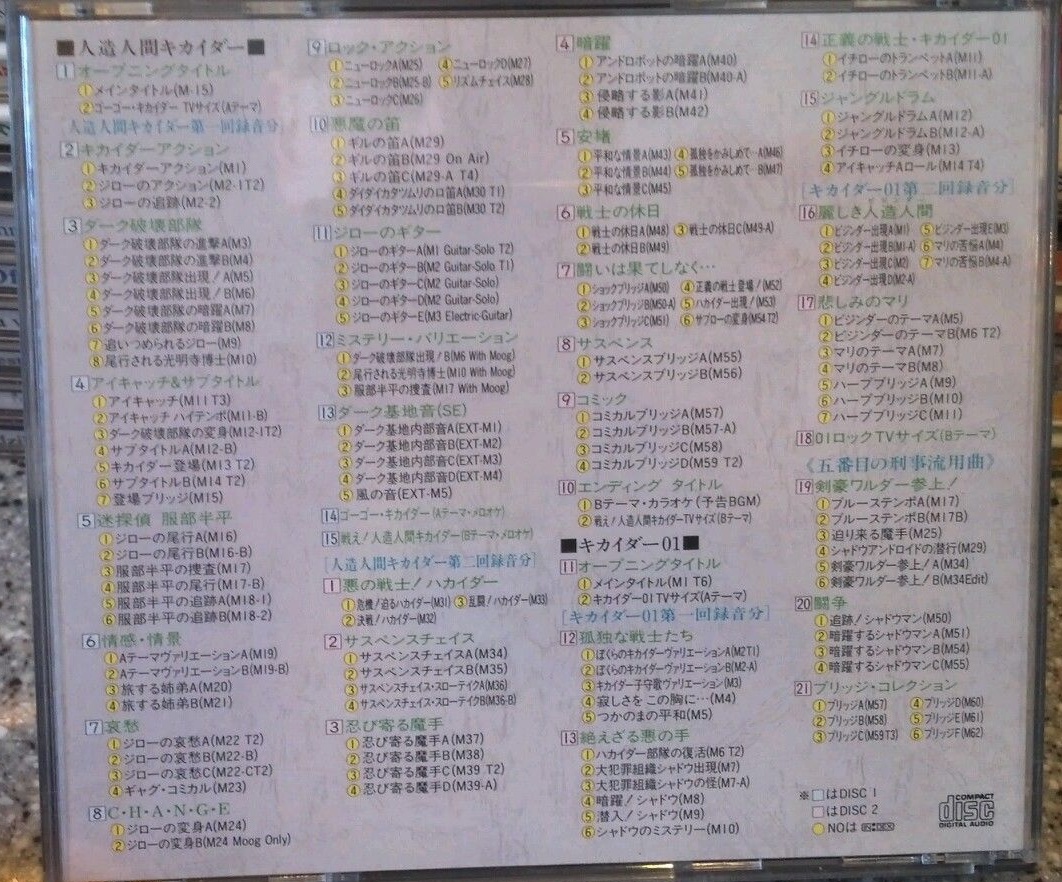 ■人造人間キカイダー■
1 オープニングタイトル
①メインタイトル(M-15)
②ゴーゴー・キカイダー TVサイズ(Aテーマ)
[人造人間キカイダー第一回録音分]
2 キカイダーアクション
①キカイダーアクション(M1)
②ジローのアクション(M2-1T2)
③ジローの追跡(M2-2)
3 ダーク破壊部隊
①ダーク破壊部隊の進撃A(M3)
②ダーク破壊部隊の進撃B(M4)
③ダーク破壊部隊出現!A(M5)
④ダーク破壊部隊出現!B(M6)
⑤ダーク破壊部隊の暗躍A(M7)
⑥ダーク破壊部隊の暗躍B(M8)
⑦追いつめられるジロー(M9)
⑧尾行される光明寺博士(M10)
4 アイキャッチ&サブタイトル
①アイキャッチ(M11T3)
②アイキャッチ ハイテンポ(M11-B)
③ダーク破壊部隊の変身(M12-1T2)
④サブタイトルA(M12-B)
⑤キカイダー登場(M13 T2)
⑥サブタイトルB(M14 T2)
⑦登場ブリッジ(M15)
5 迷探偵 服部半平
①ジローの尾行A(M16)
②ジローの尾行B(M16-B)
③服部半平の捜査(M17)
④服部半平の尾行(M17-B)
⑤服部半平の追跡A(M18-1)
⑥服部半平の追跡B(M18-2)
6 情感・情景
①AテーマヴァリエーションA(M19)
②AテーマヴァリエーションB(M19-B)
③旅する姉弟A(M20)
④旅する姉弟B(M21)
7 哀愁
①ジローの哀愁A(M22 T2)
②ジローの哀愁B(M22-B)
③ジローの哀愁C(M22-CT2)
④ギャグ・コミカル(M23)
8 C・H・A・N・G・E
①ジローの変身A(M24)
②ジローの変身B(M24 Moog Only)
9 ロック・アクション
①ニューロックA(M25) ④ニューロックD(M27)
②ニューロックB(M25-B) ⑤リズムチェイス(M28)
③ニューロックC(M26)
10 悪魔の笛
①ギルの笛A(M29)
②ギルの笛B(M29 On Air)
③ギルの笛C(M29-A T4)
④ダイダイカタツムリの口笛A(M30 T1)
⑤ダイダイカタツムリの口笛B(M30 T2)
11 ジローのギター
①ジローのギターA(M1 Guitar-Solo T2)
②ジローのギターB(M2 Guitar-Solo T1)
③ジローのギターC(M2 Guitar-Solo)
④ジローのギターD(M2 Guitar-Solo)
⑤ジローのギターE(M3 Electric-Guitar)
12 ミステリー・バリエーション
①ダーク破壊部隊出現!B(M6 With Moog)
②尾行される光明寺博士(M10 With Moog)
③服部半平の捜査(M17 With Moog)
13 ダーク基地音(SE)
①ダーク基地内部音A(EXT-M1)
②ダーク基地内部音B(EXT-M2)
③ダーク基地内部音C(EXT-M3)
④ダーク基地内部音D(EXT-M4)
⑤風の音(EXT-M5)
14 ゴーゴー・キカイダー(Aテーマ・メロオケ)
15 戦え!人造人間キカイダー(Bテーマ・メロオケ)
[人造人間キカイダー第二回録音分]
1 悪の戦士!ハカイダー
①危機!迫るハカイダー(M31) ③乱闘!ハカイダー(M33)
②決戦!ハカイダー(M32)
2 サスペンスチェイス
①サスペンスチェイスA(M34)
②サスペンスチェイスB(M35)
③サスペンスチェイス・スローテイクA(M36)
④サスペンスチェイス・スローテイクB(M36-B)
3 忍び寄る魔手
①忍び寄る魔手A(M37)
②忍び寄る魔手B(M38)
③忍び寄る魔手C(M39 T2)
④忍び寄る魔手D(M39-A)
4 暗躍
①アンドロボットの暗躍A(M40)
②アンドロボットの暗躍B(M40-A)
③侵略する影A(M41)
④侵略する影B(M42)
5 安堵
①平和な情景A(M43) ④孤独をかみしめて…A(M46)
②平和な情景B(M44) ⑤孤独をかみしめて…B(M47)
③平和な情景C(M45)
6 戦士の休日
①戦士の休日A(M48) ③戦士の休日C(M49-A)
②戦士の休日B(M49)
7 闘いは果てしなく…
①ショックブリッジA(M50) ④正義の戦士登場!(M52)
②ショックブリッジB(M50-A) ⑤ハカイダー出現!(M53)
③ショックブリッジC(M51) ⑥サブローの変身(M54 T2)
8 サスペンス
①サスペンスブリッジA(M55)
②サスペンスブリッジB(M56)
9 コミック
①コミカルブリッジA(M57)
②コミカルブリッジB(M57-A)
③コミカルブリッジC(M58)
④コミカルブリッジD(M59 T2)
10 エンディング タイトル
①Bテーマ・カラオケ(予告BGM)
②戦え!人造人間キカイダーTVサイズ(Bテーマ)
■キカイダー01■
11 オープニングタイトル
①メインタイトル(M1 T6)
②キカイダー01 TVサイズ(Aテーマ)
[キカイダー01第一回録音分]
12 孤独な戦士たち
①ぼくらのキカイダーヴァリエーションA(M2T1)
②ぼくらのキカイダーヴァリエーションB(M2-A)
③キカイダー子守歌ヴァリエーション(M3)
④寂しさを この胸に…(M4)
⑤つかのまの平和(M5)
13 絶えざる悪の手
①ハカイダー部隊の復活(M6 T2)
②大犯罪組織シャドウ出現(M7)
③大犯罪組織シャドウの怪(M7-A)
④暗躍!シャドウ(M8)
⑤潜入!シャドウ(M9)
⑥シャドウのミステリー(M10)
14 正義の戦士・キカイダー01
①イチローのトランペットA(M11)
②イチローのトランペットB(M11-A)
15 ジャングルドラム
①ジャングルドラムA(M12)
②ジャングルドラムB(M12-A)
③イチローの変身(M13)
④アイキャッチAロール(M14 T4)
[キカイダー01第二回録音分]
16 麗しき人造人間
①ビジンダー出現A(M1) ⑤ビジンダー出現E(M3)
②ビジンダー出現B(M1-A) ⑥マリの苦悩A(M4)
③ビジンダー出現C(M2) ⑦マリの苦悩B(M4-A)
④ビジンダー出現D(M2-A)
17 悲しみのマリ
①ビジンダーのテーマA(M5)
②ビジンダーのテーマB(M6 T2)
③マリのテーマA(M7)
④マリのテーマB(M8)
⑤ハープブリッジA(M9)
⑥ハープブリッジB(M10)
⑦ハープブリッジC(M11)
18 01ロックTVサイズ(Bテーマ)
《五番目の刑事流用曲》
19 剣豪ワルダー参上!
①ブルーステンポA(M17)
②ブルーステンポB(M17B)
③迫り来る魔手(M25)
④シャドウアンドロイドの潜行(M29)
⑤剣豪ワルダー参上!A(M34)
⑥剣豪ワルダー参上!B(M34Edit)
20 闘争
①追跡!シャドウマン(M50)
②暗躍するシャドウマンA(M51)
③暗躍するシャドウマンB(M54)
④暗躍するシャドウマンC(M55)
21 ブリッジ・コレクション
①ブリッジA(M57) ④ブリッジD(M60)
②ブリッジB(M58) ⑤ブリッジE(M61)
③ブリッジC(M59T3) ⑥ブリッジF(M62)
※□はDISC 1
□はDISC 2
○NOはINDEX
COMPACT
disc
DIGITAL AUDIO